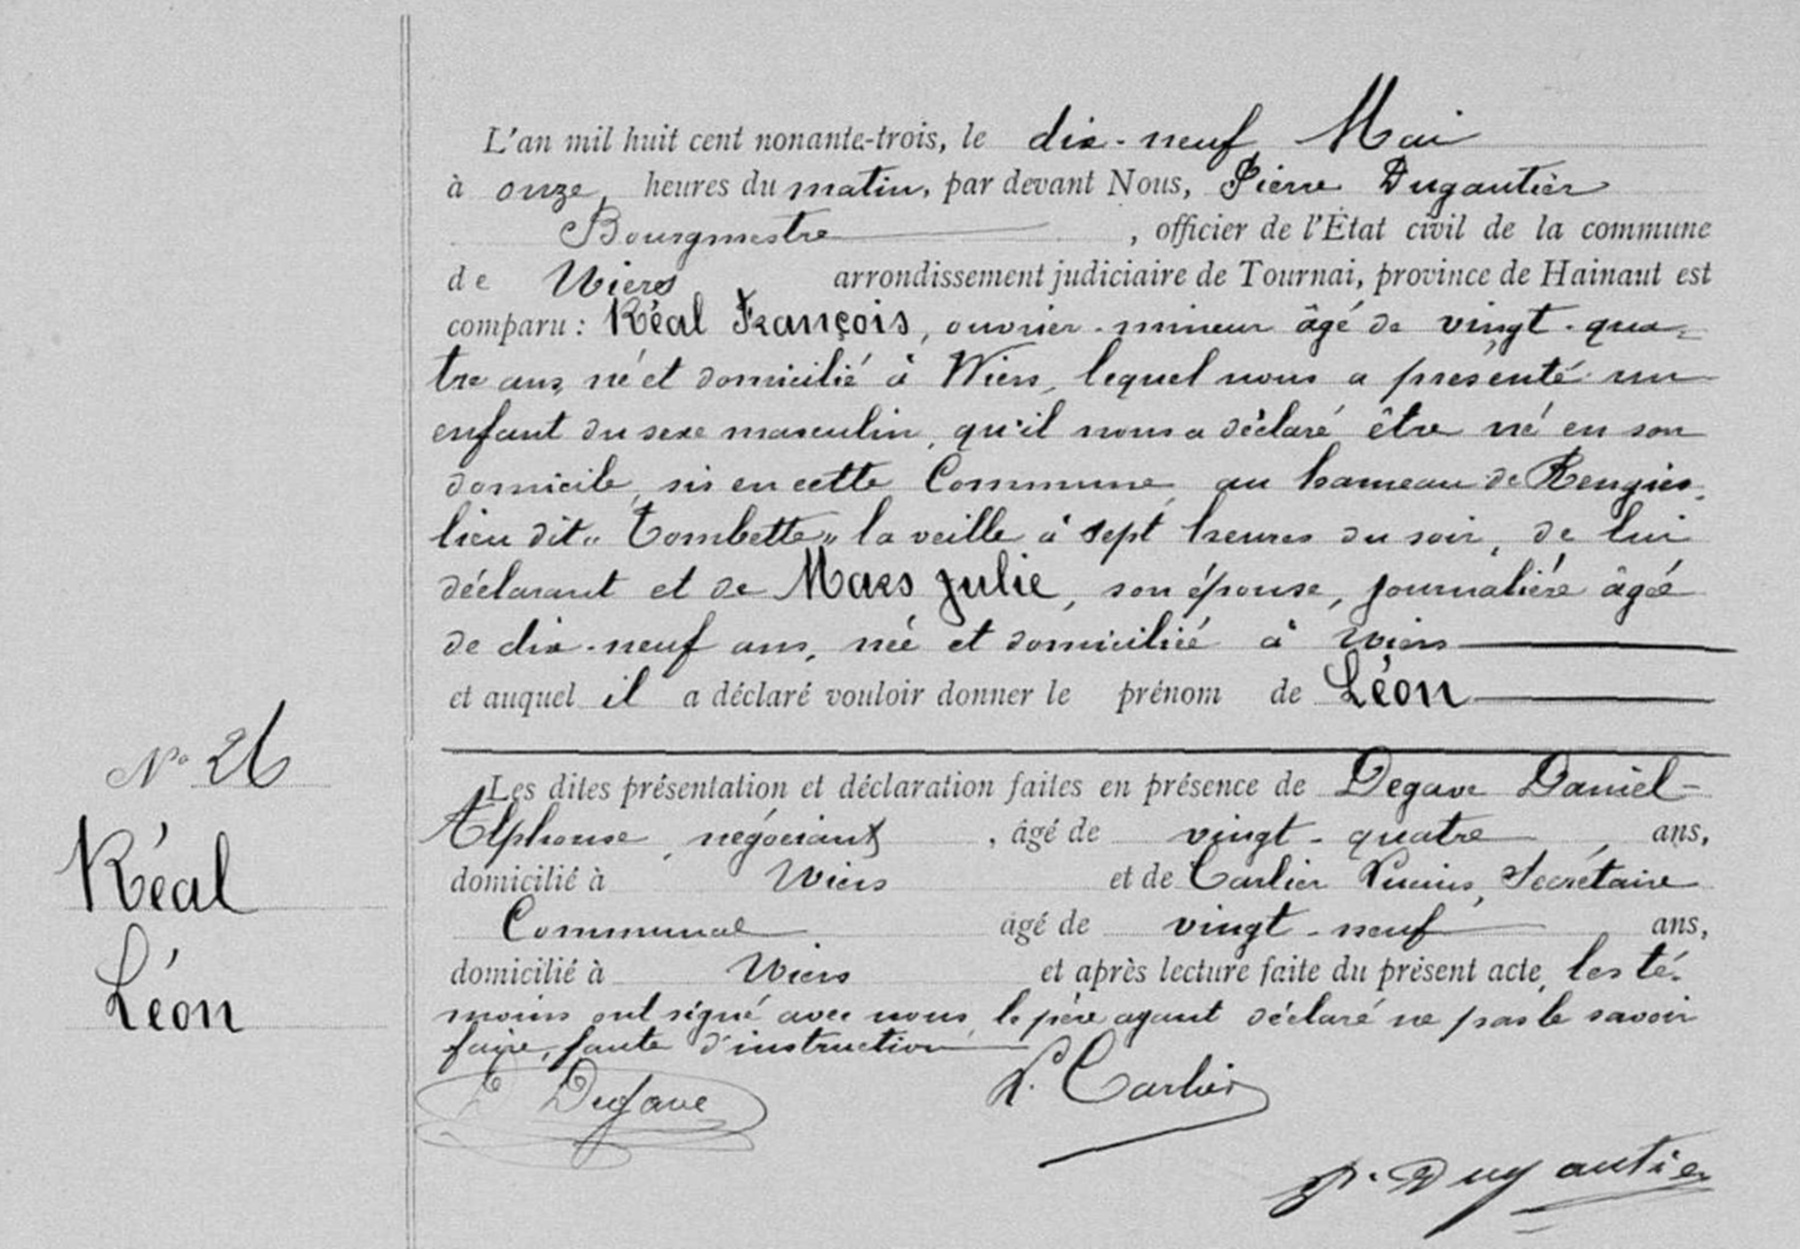 L'an mil huit cent nonante-trois, le dix-neuf Mai
à onze, heures du matin, par devant Nous, Pierre Dugautier
Bourgmestre, officier de l'État civil de la commune
de Wiers arrondissement judiciaire de Tournai, province de Hainaut est
comparu : Réal François, ouvrier-mineur âgé de vingt-qua-
tre ans, né et domicilié à Wiers, lequel nous a présenté un
enfant du sexe masculin, qu'il nous a déclaré être né en son
domicile, sis en cette Commune, au hameau de Rengies,
lieu dit „ Tombette „ la veille à sept heures du soir, de lui
déclarant et de Maes Julie, son épouse, journalière âgée
de dix-neuf ans, née et domiciliée à Wiers
et auquel il a déclaré vouloir donner le prénom de Léon
Les dites présentation et déclaration faites en présence de Degave Daniel-
Alphonse, négociant, âgé de vingt-quatre ans,
domicilié à Wiers et de Carlier, Secrétaire
Communal âgé de vingt-neuf ans,
domicilié à Wiers et après lecture faite du présent acte, les té-
moins ont signé avec nous, le père ayant déclaré ne pas le savoir
faire, faute d'instruction
D Degave
L. Carlier
P. Dugautier
N° 26
Réal
Léon